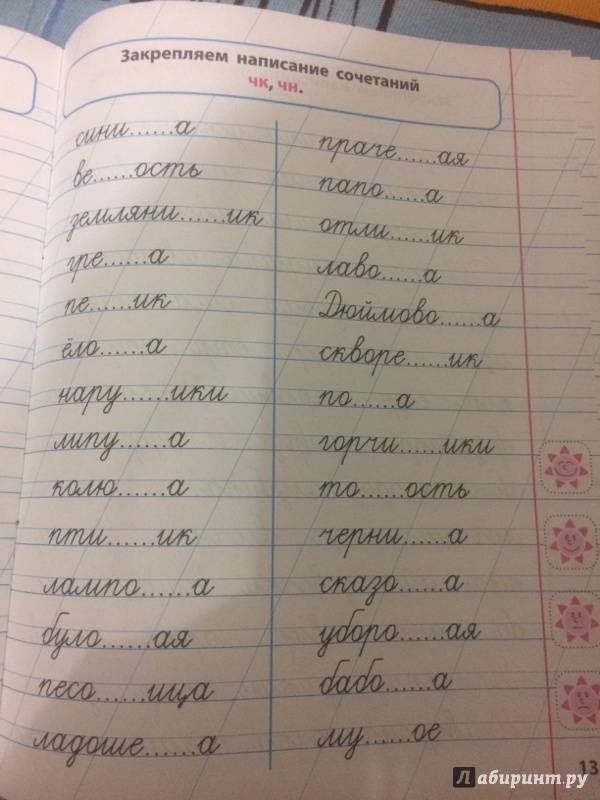 Закрепляем написание сочетаний
чк, чн.
сини......а
ве......ость
земляни......ик
гре......а
пе......ик
ёло......а
нару......ики
липу......а
колю......а
пти......ик
лампо......а
було......ая
песо......ица
ладоше......а
праче......ая
папо......а
отли......ик
лаво......а
Дюймово......а
скворе......ик
по......а
горчи......ики
то......ость
черни......а
сказо......а
уборо......ая
бабо......а
му......ое
13
Лабиринт.ру